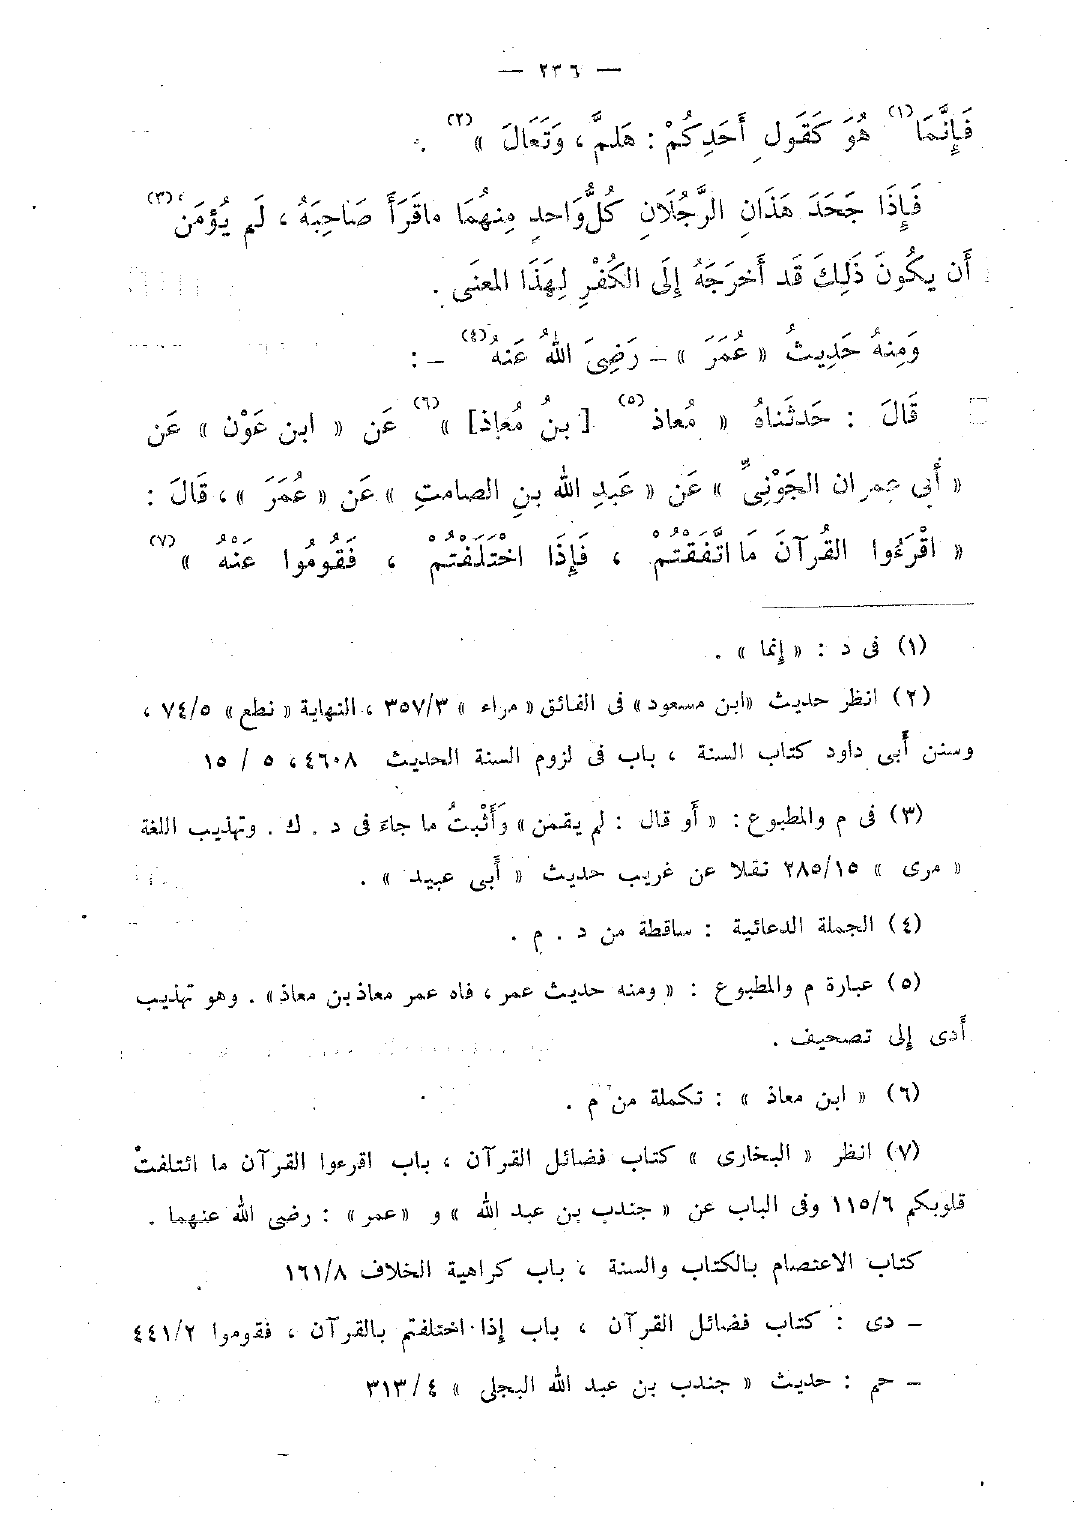 — ٢٣٦ —
فَإِنَّمَا (١) هُوَ كَقَولِ أَحَدِكُمْ : هَلمَّ ، وَتَعَالَ » (٢) .
فَإِذَا جَحَدَ هَذَانِ الرَّجُلَانِ كُلُّ وَاحدٍ مِنهُمَا ماقَرَأَ صَاحِبَهُ ، لَم يُؤمَنْ (٣)
أَن يكُونَ ذَلِكَ قَد أَخرَجَهُ إِلَى الكُفْرِ لِهَذَا المعنَى .
وَمِنهُ حَدِيثُ « عُمَرَ » – رَضِىَ اللهُ عَنهُ (٤) – :
قَالَ : حَدثَناهُ « مُعاذ (٥) [ بنُ مُعاذ] » (٦) عَن « ابن عَوْن » عَن
« أَبي عِمران الجَوْنِىِّ » عَن « عَبدِ الله بنِ الصامتِ » عَن « عُمَرَ » ، قَالَ :
« اقْرَءُوا القُرآنَ مَا اتَّفَقْتُمْ ، فَإِذَا اخْتَلَفْتُمْ ، فَقُومُوا عَنْهُ » (٧)
(١) فى د : « إنما » .
(٢) انظر حديث «ابن مسعود» فى الفائق « مراء » ٣٥٧/٣ ، النهاية « نطع » ٧٤/٥ ،
وسنن أَبى داود كتاب السنة ، باب فى لزوم السنة الحديث ٤٦٠٨ ، ٥ / ١٥
(٣) فى م والمطبوع : « أَو قال : لم يقمن » وَأَثْبتُ ما جاءَ فى د . ك . وتهذيب اللغة
« مرى » ٢٨٥/١٥ نقلا عن غريب حديث « أَبى عبيد » .
(٤) الجملة الدعائية : ساقطة من د . م .
(٥) عبارة م والمطبوع : « ومنه حديث عمر ، فاه عمر معاذ بن معاذ » . وهو تهذيب
أَدى إلى تصحيف .
(٦) « ابن معاذ » : تكملة من م .
(٧) انظر « البخارى » كتاب فضائل القرآن ، باب اقرءوا القرآن ما ائتلفتْ
قلوبكم ١١٥/٦ وفى الباب عن « جندب بن عبد الله » و «عمر» : رضى الله عنهما .
كتاب الاعتصام بالكتاب والسنة ، باب كراهية الخلاف ١٦١/٨
– دى : كتاب فضائل القرآن ، باب إذا اختلفتم بالقرآن ، فقوموا ٤٤١/٢
– حم : حديث « جندب بن عبد الله البجلى » ٣١٣/٤